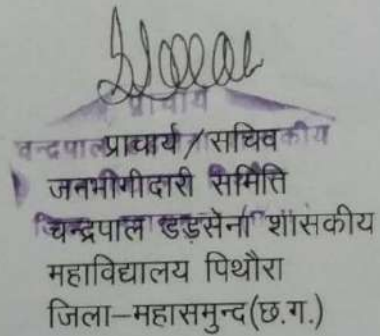 प्राचार्य
प्राचार्य / सचिव
जनभीगीदारी समिति
चन्द्रपाल डड़सेना शासकीय
महाविद्यालय पिथौरा
जिला–महासमुन्द(छ.ग.)